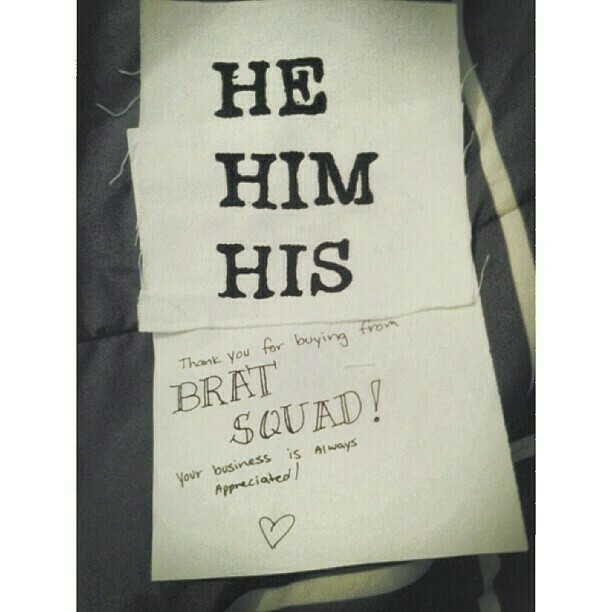 HE
HIM
HIS
Thank you for buying from
BRAT
SQUAD!
Your business is Always
Appreciated!